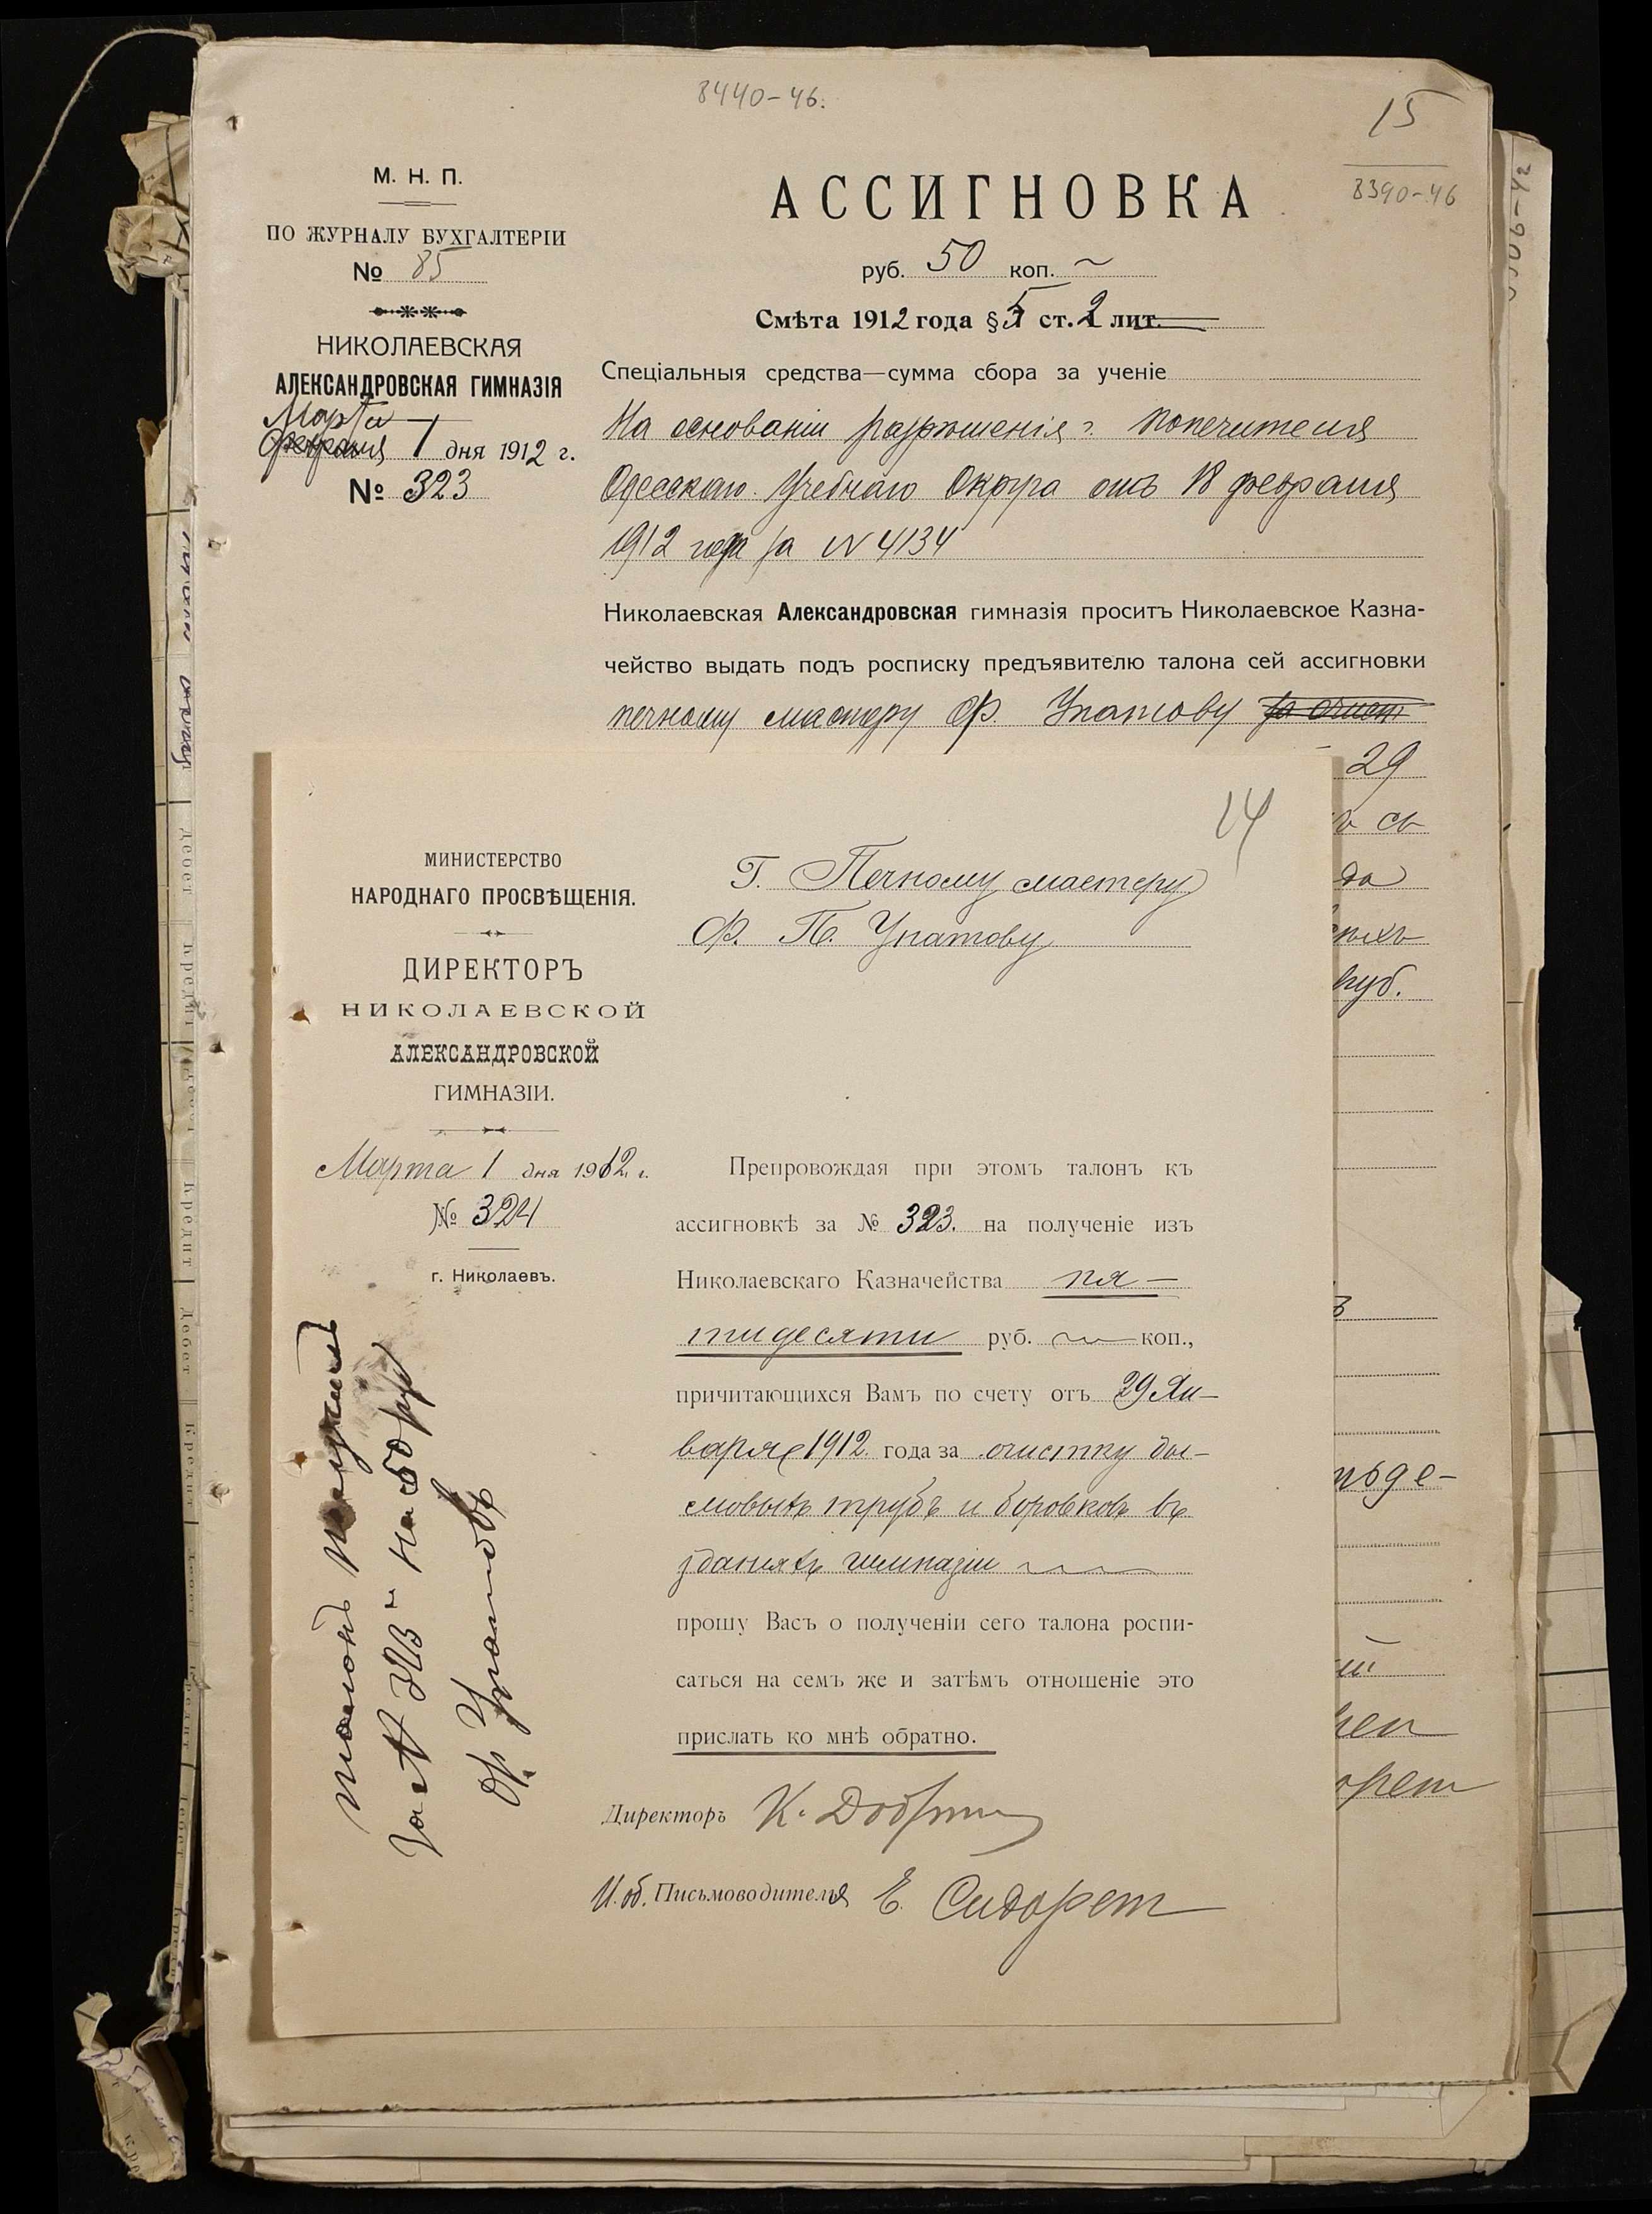 8440-46.
15
8390-46
М. Н. П.
ПО ЖУРНАЛУ БУХГАЛТЕРІИ
№ 85
НИКОЛАЕВСКАЯ
АЛЕКСАНДРОВСКАЯ ГИМНАЗІЯ
Марта
февраля 1 дня 1912 г.
№ 323
АССИГНОВКА
руб. 50 коп. ~
Смѣта 1912 года § 5 ст. 2 лит.
Спеціальныя средства—сумма сбора за ученіе
На основаніи разрѣшенія г. Попечителя
Одесскаго Учебнаго Округа отъ 18 февраля
1912 года за № 4134
Николаевская Александровская гимназія проситъ Николаевское Казна-
чейство выдать подъ росписку предъявителю талона сей ассигновки
печному мастеру Ф. Упатову за очист
29
да
руб.
14
МИНИСТЕРСТВО
НАРОДНАГО ПРОСВѢЩЕНІЯ.
ДИРЕКТОРЪ
НИКОЛАЕВСКОЙ
АЛЕКСАНДРОВСКОЙ
ГИМНАЗІИ.
Марта 1 дня 1912 г.
№ 324
г. Николаевъ.
Г. Печному мастеру
Ф. П. Упатову
Препровождая при этомъ талонъ къ
ассигновкѣ за № 323. на полученіе изъ
Николаевскаго Казначейства пя-
тидесяти руб. ~ коп.,
причитающихся Вамъ по счету отъ 29 Ян-
варя 1912 года за очистку ды-
мовыхъ трубъ и боровковъ въ
зданіяхъ гимназіи
прошу Васъ о полученіи сего талона роспи-
саться на семъ же и затѣмъ отношеніе это
прислать ко мнѣ обратно.
Директоръ К.
И. об. Письмоводителя Е. Сидорет
талонъ получилъ
за № 323 на 50 руб
Ф. Упатовъ